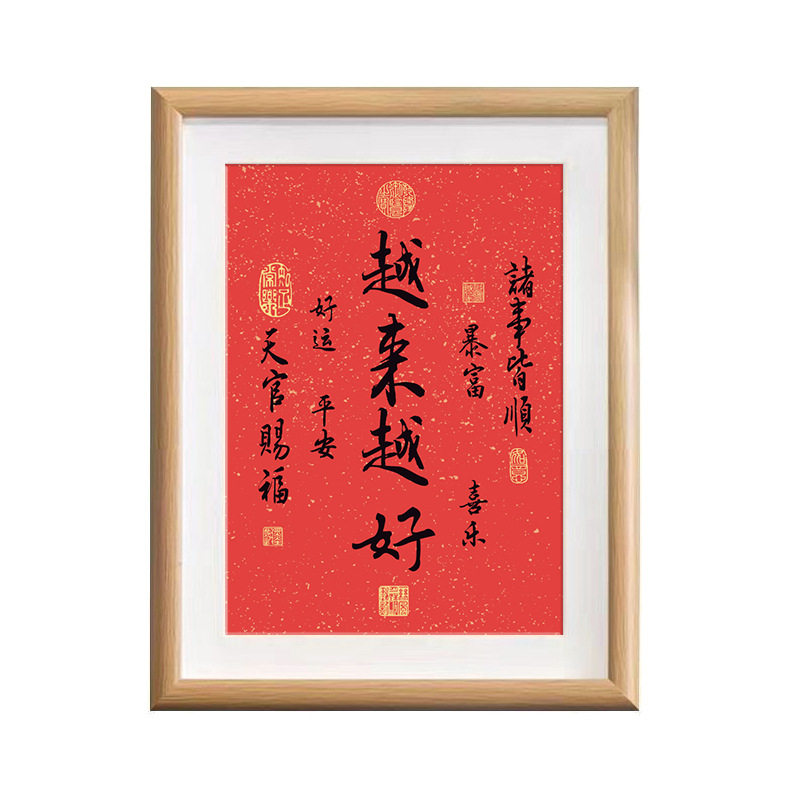 諸事皆順
暴富
喜乐
越来越好
好运
平安
天官賜福